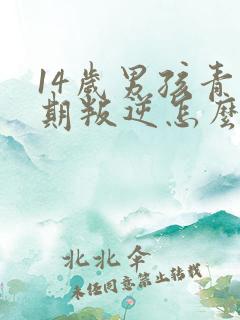 14岁男孩青
期叛逆怎么
北北伞
未经同意禁止转载